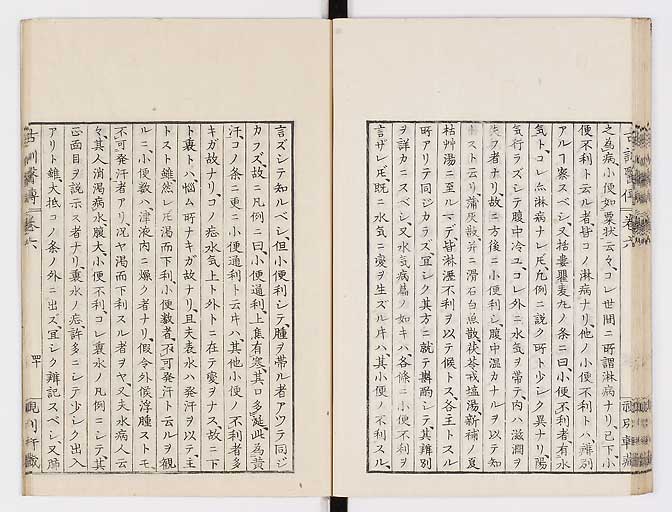 之為病小便如粟狀云々、コレ世間ニ所謂淋病ナリ、已下小
便不利ト云ル者、皆コノ淋病ナリ、他ノ小便不利トハ、辨別
アルヿ察スベシ、又栝蔞瞿麦丸ノ条ニ曰、小便不利者有水
気ト、コレ亦淋病ナレ𪜈、凡例ニ説ク所ト少シク異ナリ、陽
気行ラズシテ腹中冷ユ、コレ外ニ水気ヲ帯テ、内ハ滋潤ヲ
失フ者ナリ、故ニ方後ニ小便利シ、腹中温カナルヲ以テ知
トスト云リ、蒲灰散并ニ滑石白魚散、茯苓戎塩湯、新補ノ夏
枯艸湯ニ至ルマデ、皆淋瀝不利ヲ以テ候トス、各主トスル
所アリテ同ジカラズ、宜シク其方ニ就テ斟酌シテ其辨別
ヲ詳カニスベシ、又水気病篇ノ如キハ、各條ニ小便不利ヲ
言ザレ𪜈、既ニ水気ニ変ヲ生ズル片ハ、其小便ノ不利スル、
言ズシテ知ルベシ、但小便利シテ、腫ヲ帯ル者アツテ同ジ
カラズ、故ニ凡例ニ曰、小便通利、上焦有寒、其口多涎、此為黄
汗、コノ条ニ更ニ小便通利ト云片ハ、其他小便ノ不利者多
キガ故ナリ、コノ症水気上ト外トニ在テ変ヲナス、故ニ下
ト裏トハ、悩ム所ナキガ故ナリ、且夫表水ハ発汗ヲ以テ、主
トスト雖、然レ𪜈渇而下利、小便数者、不可発汗ト云ルヲ観
ルニ、小便数ハ、津液内ニ燥ク者ナリ、假令外候浮腫ストモ、
不可発汗者アリ、況ヤ渇而下利スル者ヲヤ、又夫水病人云
々、其人消渇病水腹大、小便不利、コレ裏水ノ凡例ニシテ其
正面目ヲ説示ス者ナリ、裏水ノ症許多ニシテ、少シク出入
アリト雖、大抵コノ条ノ外ニ出ズ、宜シク辨記スベシ、又肺
巻六
四十